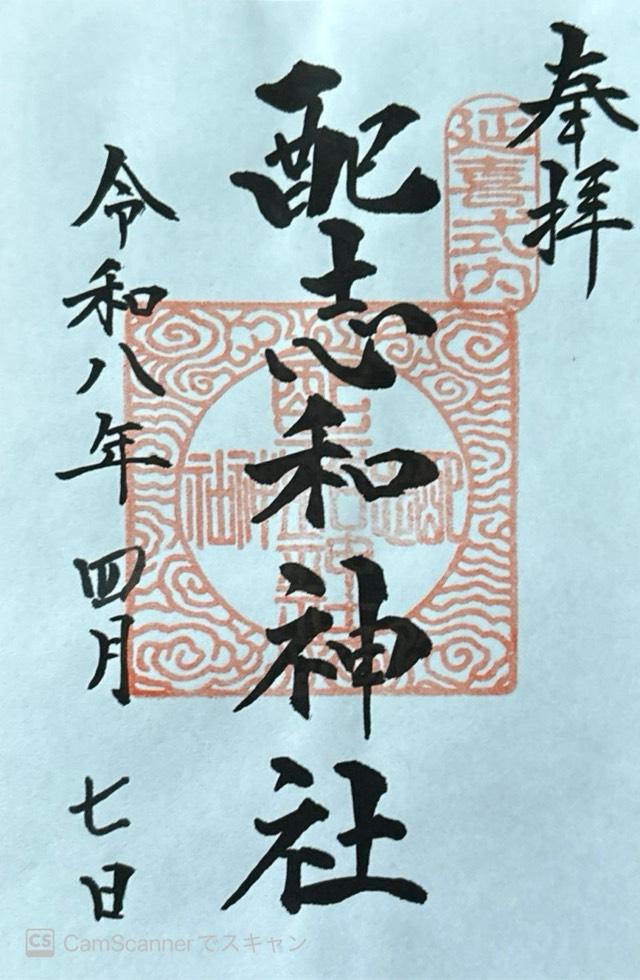 奉拝
延喜式内
配志和神社
令和八年四月七日
CS CamScannerでスキャン